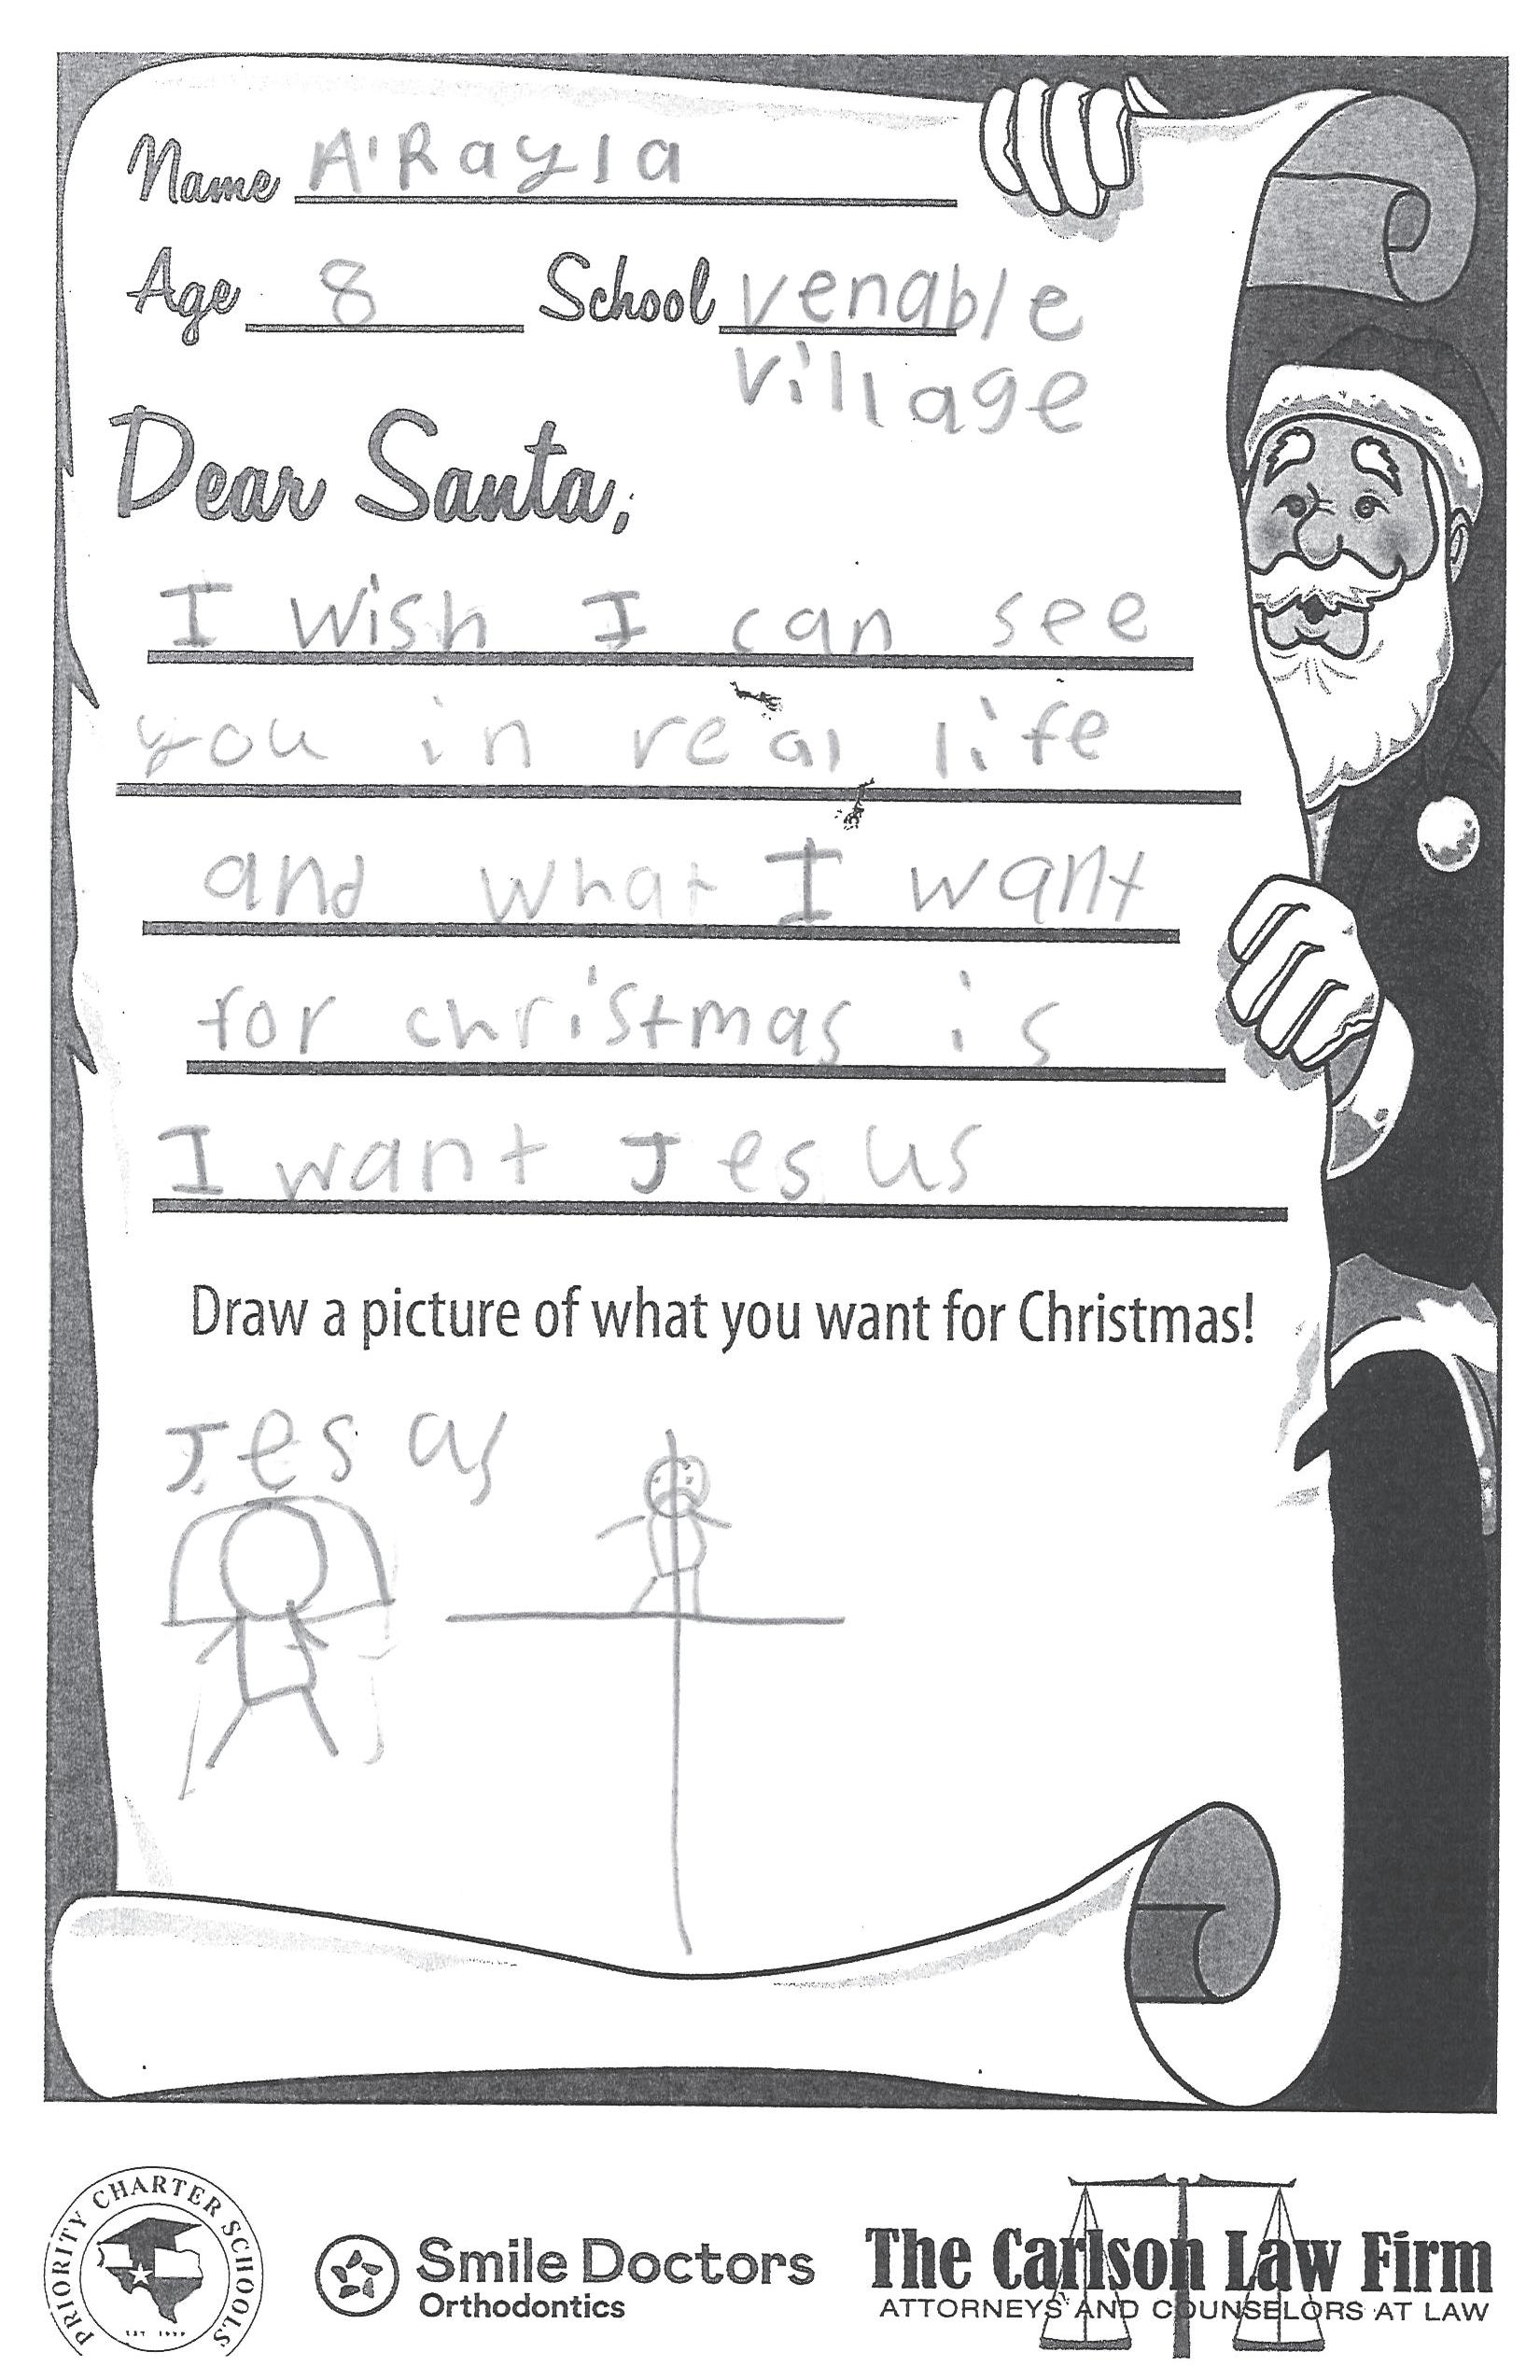 Name A'Rayla
Age 8 School venable
village
Dear Santa,
I wish I can see
you in real life
and what I want
for christmas is
I want Jesus
Draw a picture of what you want for Christmas!
Jesus
PRIORITY CHARTER SCHOOLS
Smile Doctors
Orthodontics
The Carlson Law Firm
ATTORNEYS AND COUNSELORS AT LAW